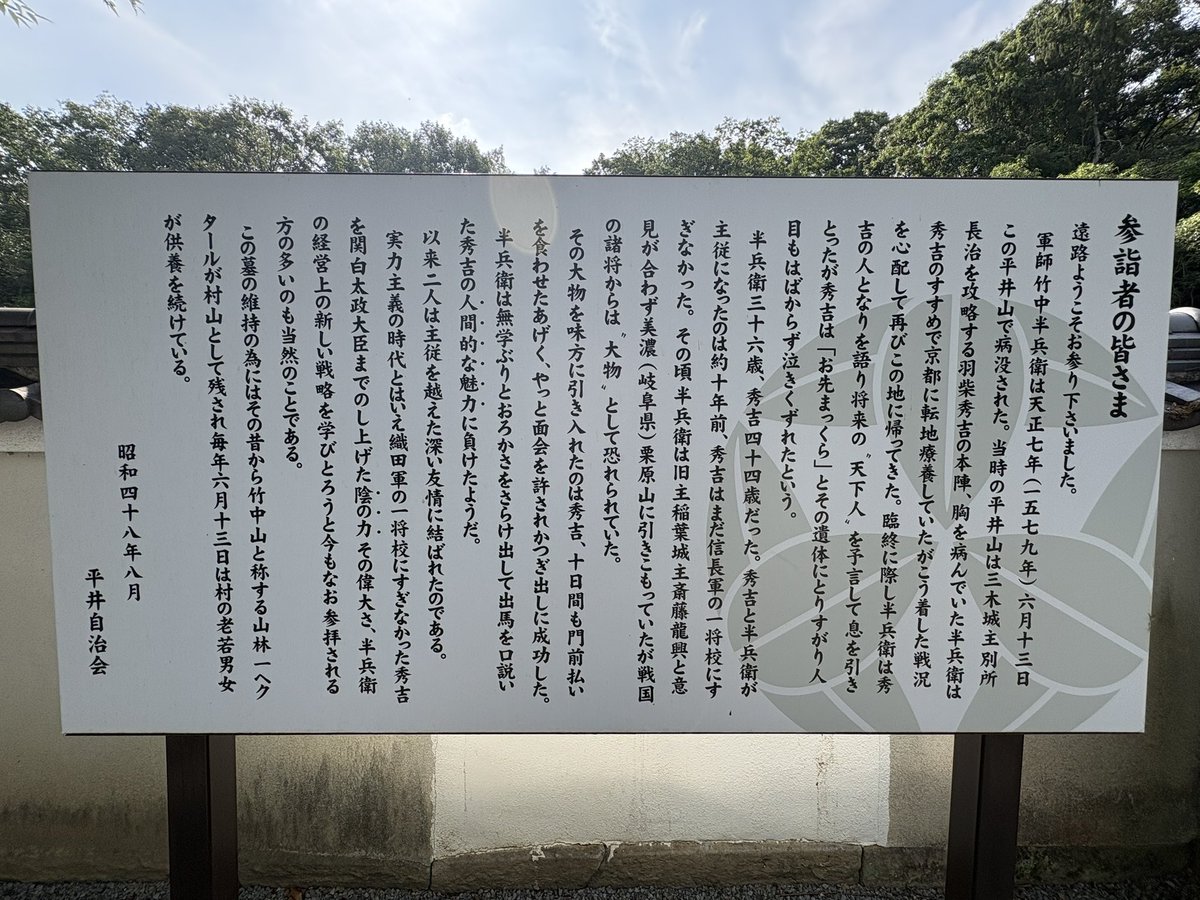 参詣者の皆さま
遠路ようこそお参り下さいました。
軍師竹中半兵衛は天正七年(一五七九年)六月十三日
この平井山で病没された。当時の平井山は三木城主別所
長治を攻略する羽柴秀吉の本陣、胸を病んでいた半兵衛は
秀吉のすすめで京都に転地療養していたがこう着した戦況
を心配して再びこの地に帰ってきた。臨終に際し半兵衛は秀
吉の人となりを語り将来の〝天下人〟を予言して息を引き
とったが秀吉は「お先まっくら」とその遺体にとりすがり人
目もはばからず泣きくずれたという。
半兵衛三十六歳、秀吉四十四歳だった。秀吉と半兵衛が
主従になったのは約十年前、秀吉はまだ信長軍の一将校にす
ぎなかった。その頃半兵衛は旧主稲葉城主斎藤龍興と意
見が合わず美濃(岐阜県)栗原山に引きこもっていたが戦国
の諸将からは〝大物〟として恐れられていた。
その大物を味方に引き入れたのは秀吉、十日間も門前払い
を食わせたあげく、やっと面会を許されかつぎ出しに成功した。
半兵衛は無学ぶりとおろかさをさらけ出して出馬を口説い
た秀吉の人間的な魅力に負けたようだ。
以来二人は主従を越えた深い友情に結ばれたのである。
実力主義の時代とはいえ織田軍の一将校にすぎなかった秀吉
を関白太政大臣までのし上げた陰の力その偉大さ、半兵衛
の経営上の新しい戦略を学びとろうと今もなお参拝される
方の多いのも当然のことである。
この墓の維持の為にはその昔から竹中山と称する山林一ヘク
タールが村山として残され毎年六月十三日は村の老若男女
が供養を続けている。
昭和四十八年八月
平井自治会